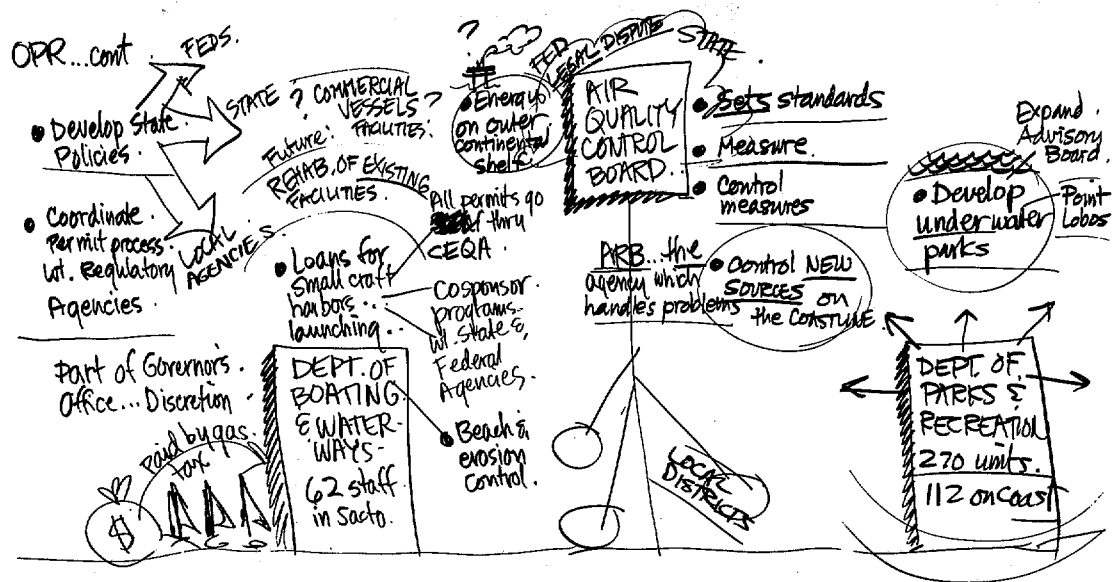 OPR...cont
FEDS.
STATE
LOCAL
AGENCIES.
• Develop State
Policies.
• Coordinate
Permit process
w/. Regulatory
Agencies.
Part of Governor's
Office... Discretion
Paid by gas
tax
$
? COMMERCIAL
VESSELS ?
FACILITIES.
Future:
REHAB. OF EXISTING
FACILITIES.
• Loans for
small craft
harbors...
launching..
All permits go
thru
CEQA
Cosponsor
programs
w/. State &
Federal
Agencies.
DEPT. OF
BOATING
& WATER-
WAYS-
62 staff
in Sacto.
• Beach &
erosion
control.
?
• Energy
on outer
continental
shelf.
FED
LEGAL DISPUTE
STATE.
AIR
QUALITY
CONTROL
BOARD..
• Sets standards
• Measure.
• Control
measures
ARB...the
agency which
handles problems
• Control NEW
SOURCES on
the COASTLINE.
LOCAL
DISTRICTS
Expand
Advisory
Board.
• Develop
underwater
parks
Point
Lobos
DEPT. OF
PARKS &
RECREATION
270 units.
112 on coast